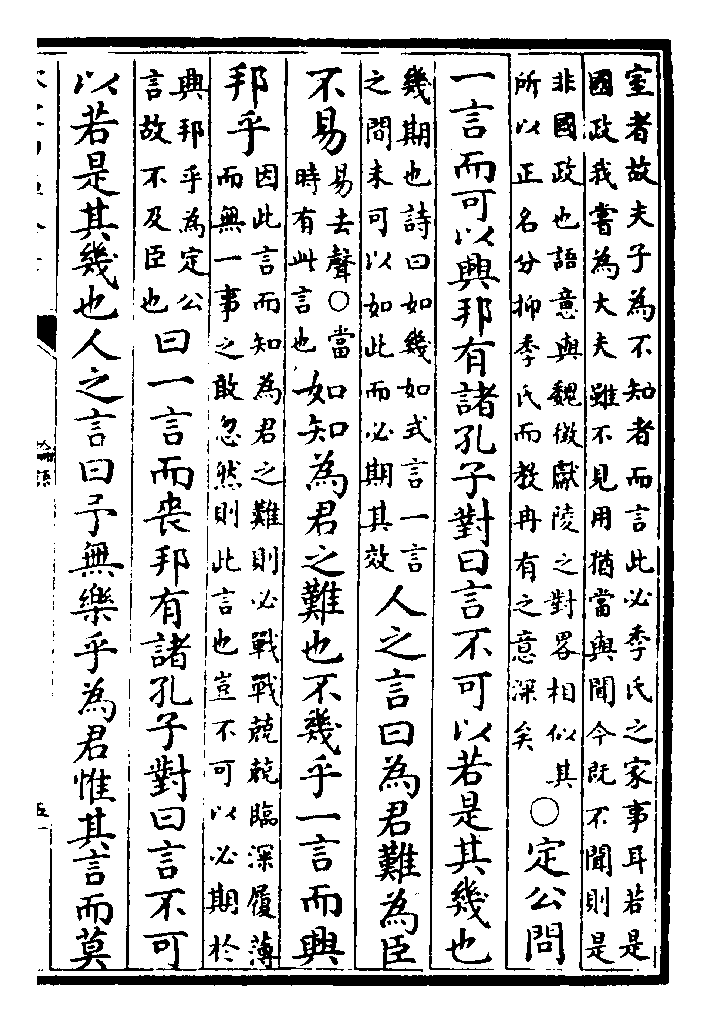 室者故夫子為不知者而言此必季氏之家事耳若是
國政我嘗為大夫雖不見用猶當與聞今既不聞則是
非國政也語意與魏徵獻陵之對畧相似其
所以正名分抑季氏而教冉有之意深矣
○定公問
一言而可以興邦有諸孔子對曰言不可以若是其幾也
幾期也詩曰如幾如式言一言
之間未可以如此而必期其效
人之言曰為君難為臣
不易
易去聲○當
時有此言也
如知為君之難也不幾乎一言而興
邦乎
因此言而知為君之難則必戰戰兢兢臨深履薄
而無一事之敢忽然則此言也豈不可以必期於
興邦乎為定公
言故不及臣也
曰一言而喪邦有諸孔子對曰言不可
以若是其幾也人之言曰予無樂乎為君惟其言而莫